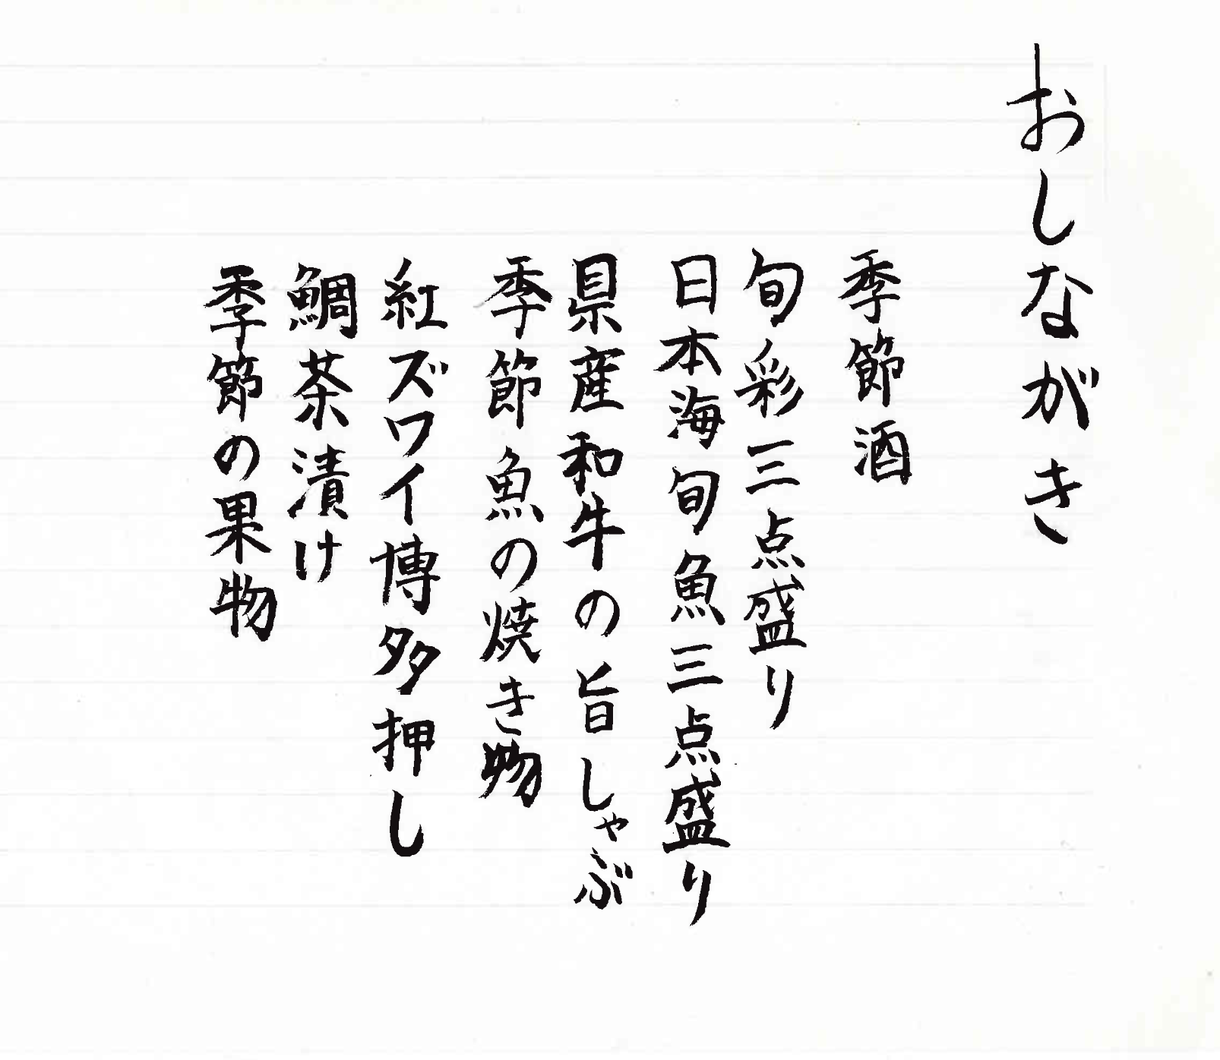 おしながき
季節酒
旬彩三点盛り
日本海旬魚三点盛り
県産和牛の旨しゃぶ
季節魚の焼き物
紅ズワイ博多押し
鯛茶漬け
季節の果物